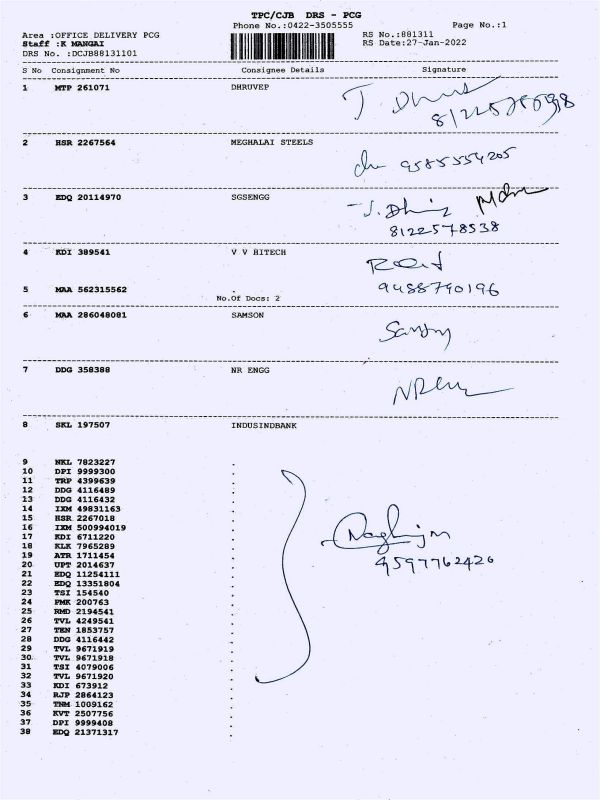 TPC/CJB DRS - PCG
Phone No.:0422-3505555 Page No.:1
Area :OFFICE DELIVERY PCG RS No.:881311
Staff :K MANGAI RS Date:27-Jan-2022
DRS No. :DCJB88131101
S No Consignment No Consignee Details Signature
1 MTP 261071 DHRUVEP
2 HSR 2267564 MEGHALAI STEELS
9585554205
3 EDQ 20114970 SGSENGG
8122578538
4 KDI 389541 V V HITECH
5 MAA 562315562 .
9488790196
No.Of Docs: 2
6 MAA 286048081 SAMSON
7 DDG 358388 NR ENGG
8 SKL 197507 INDUSINDBANK
9 NKL 7823227 .
10 DPI 9999300 .
11 TRP 4399639 .
12 DDG 4116489 .
13 DDG 4116432 .
14 IXM 49831163 .
15 HSR 2267018 .
16 IXM 500994019 .
17 KDI 6711220 .
18 KLK 7965289 .
19 ATR 1711454 .
20 UPT 2014637 .
21 EDQ 11254111 .
22 EDQ 13351804 .
23 TSI 154540 .
24 PMK 200763 .
25 RMD 2194541 .
26 TVL 4249541 .
27 TEN 1853757 .
28 DDG 4116442 .
29 TVL 9671919 .
30 TVL 9671918 .
31 TSI 4079006 .
32 TVL 9671920 .
33 KDI 673912 .
34 RJP 2864123 .
35 TNM 1009162 .
36 KVT 2507756 .
37 DPI 9999408 .
38 EDQ 21371317 .
9597762426